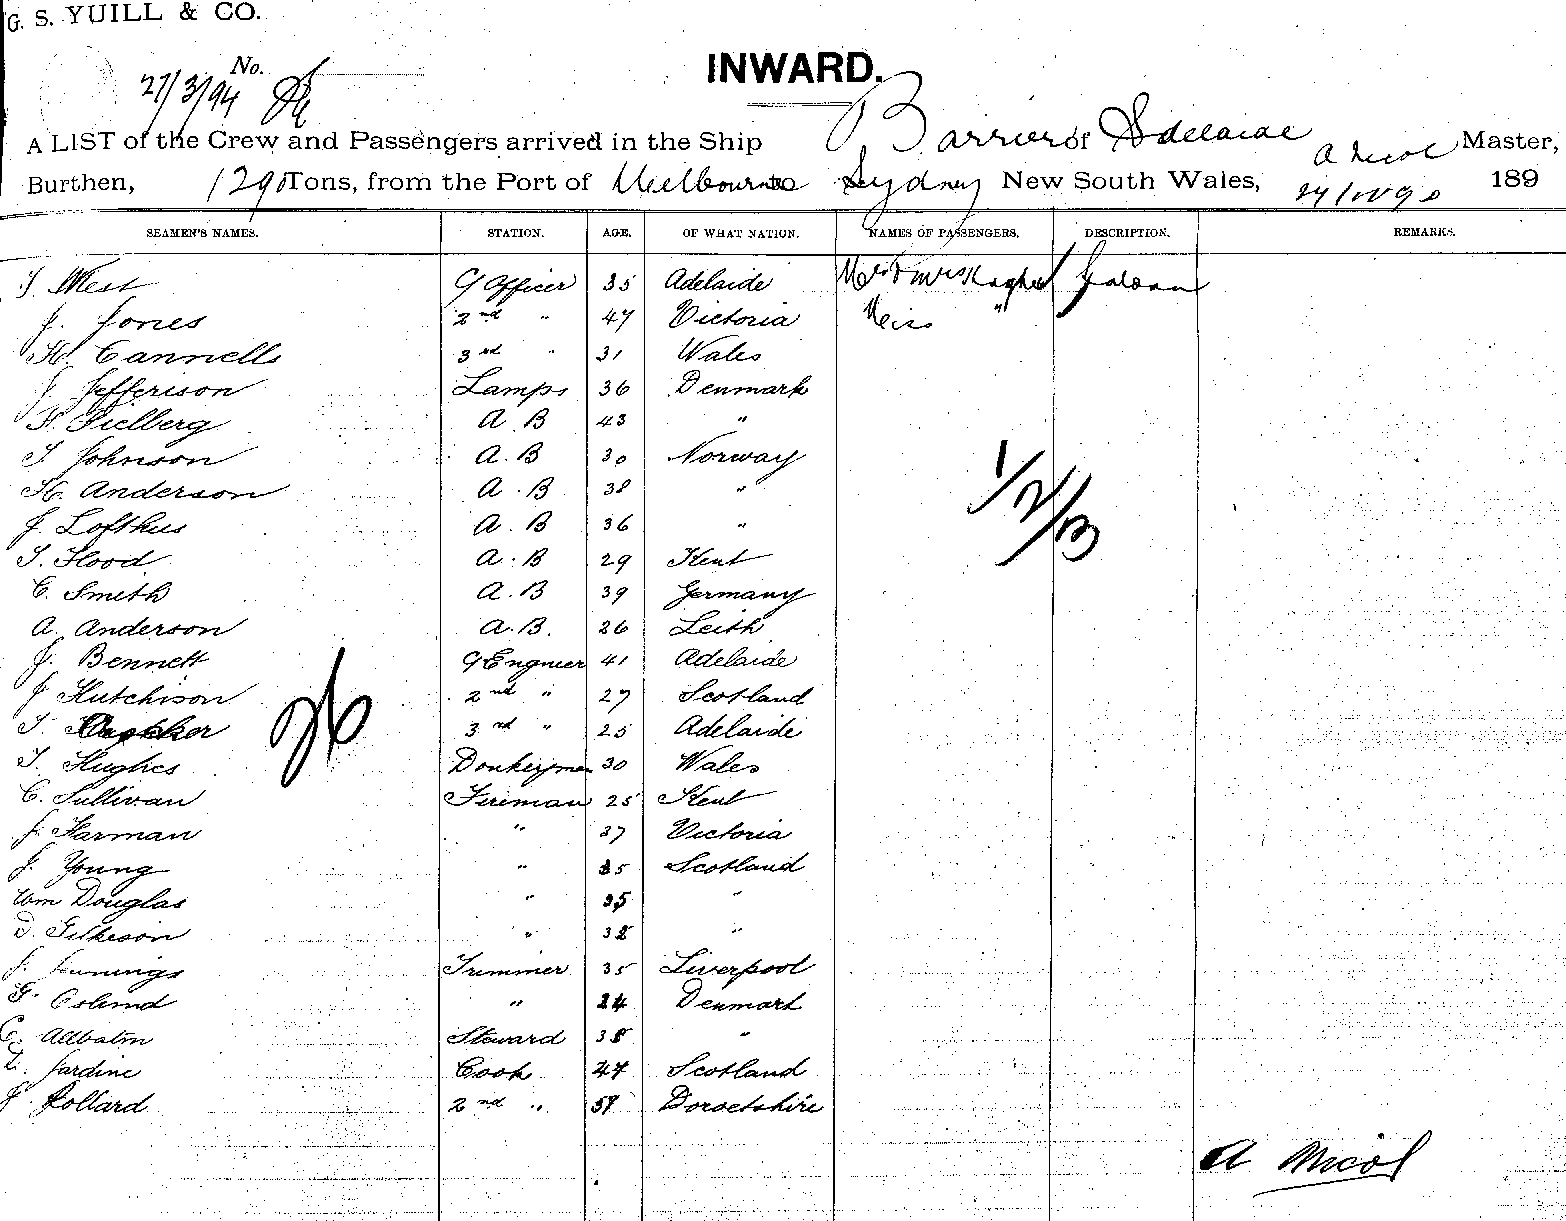 G. S. YUILL & CO.
No.
27/3/94
INWARD.
A LIST of the Crew and Passengers arrived in the Ship Barrier of Adelaide A Nicol Master,
Burthen, 1290 Tons, from the Port of Melbourne to Sydney New South Wales, 189
SEAMEN'S NAMES. STATION. AGE. OF WHAT NATION. NAMES OF PASSENGERS. DESCRIPTION. REMARKS.
T. West Officer 35 Adelaide Mr & Mrs Saloon
J. Jones 2nd " 47 Victoria Miss "
H. Cannells 3rd " 31 Wales
J. Jefferison Lamps 36 Denmark
H. Pielberg A. B 43 "
T. Johnson A. B 30 Norway
H. Anderson A. B 38 "
J. Lofthus A. B 36 "
T. Hood A. B 29 Kent
C. Smith A. B 39 Germany
A. Anderson A. B. 26 Leith
J. Bennett Engnieer 41 Adelaide
J. Hutchison 2nd " 27 Scotland
T. 3rd " 25 Adelaide
T. Hughes Donkeyman 30 Wales
C. Sullivan Fireman 25 Kent
J. Harman " 37 Victoria
J. Young " 35 Scotland
Wm Douglas " 35 "
D. Gilkeson " 38 "
J. Jennings Trimmer 35 Liverpool
G. " 24 Denmark
Steward 38 "
Jardine Cook 47 Scotland
J. Pollard 2nd " 57 Dorsetshire
26
1/2/B
A Nicol